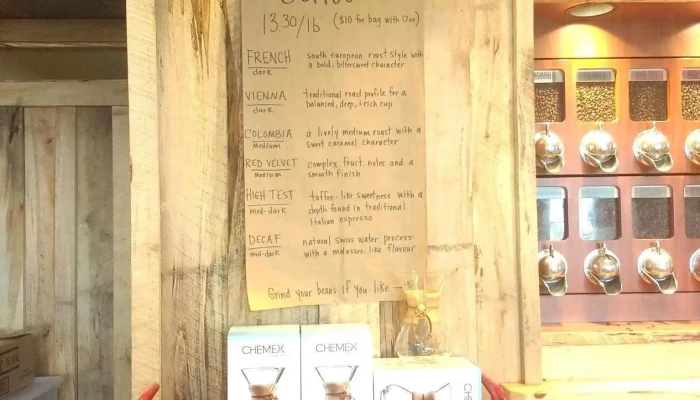 13.30/lb ($10 for bag with 12oz)
FRENCH south european roast style with
dark a bold, bittersweet character
VIENNA traditional roast profile for a
dark balanced, deep, + rich cup
COLOMBIA a lively medium roast with a
Medium sweet caramel character
RED VELVET complex fruit notes and a
Medium smooth finish
HIGH TEST toffee-like sweetness with a
med-dark depth found in traditional
Italian espresso
DECAF natural swiss water process
med-dark with a molasses-like flavour
Grind your beans if you like
CHEMEX
CHEMEX
CHEMEX